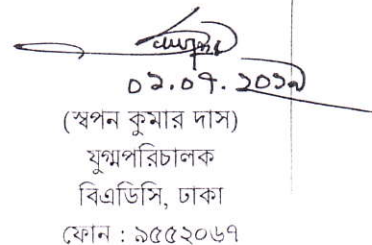 ০১.০৭.২০১৯
(স্বপন কুমার দাস)
যুগ্মপরিচালক
বিএডিসি, ঢাকা
ফোন : ৯৫৫২০৬৭